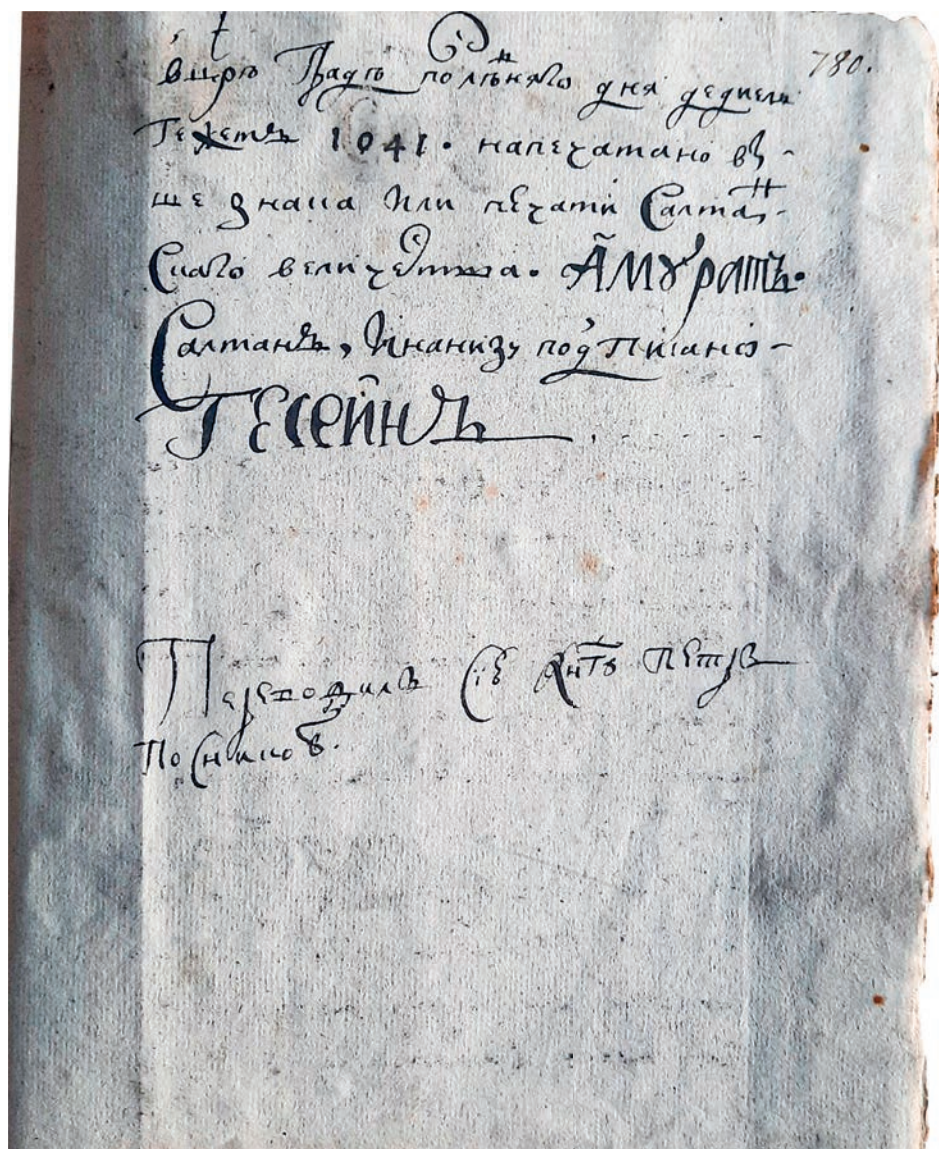 780.
вцрѣ градѣ послѣняго дня
1041. напечатано въ-
ше знака или печати Салтан-
скаго величества. Амꙋратъ.
Салтанъ, и нанизꙋ подписано-
Гесейнъ
Переводилъ Петръ
Посников.